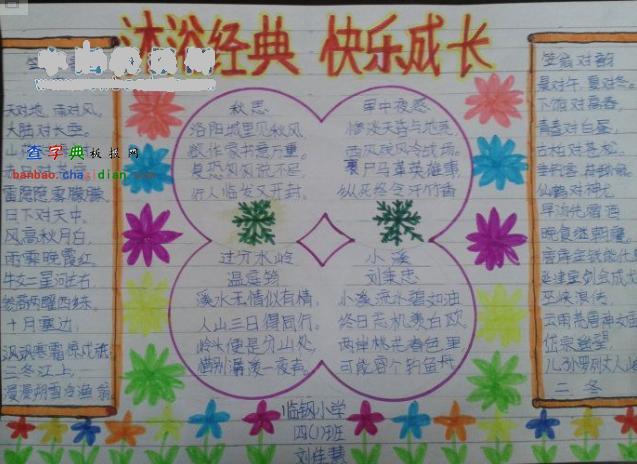 沐浴经典 快乐成长
天对地,雨对风。
大陆对长空。
雷隐隐,雾朦朦。
日下对天中。
风高秋月白,
雨霁晚霞红。
牛女二星河左右,
参商两曜西东。
十月塞边,
飒飒寒霜惊戍旅
三冬江上,
漫漫朔雪冷渔翁
秋思
洛阳城里见秋风,
欲作家书意万重。
复恐匆匆说不尽,
行人临发又开封。
里中夜愁
惨淡天昏与地荒,
西风残月冷沙场。
裹尸马革英雄事,
纵死终令汗竹香
过分水岭
温庭筠
溪水无情似有情,
入山三日得同行。
岭头便是分山处,
惜别潺湲一夜声
小溪
刘秉忠
小溪流水碧如油
终日忘机羡白鸥
两岸桃花春色里
可能容个钓鱼舟
笠翁对韵
晨对午,夏对冬。
下饷对高舂。
青春对白昼,
古柏对苍松。
仙鹤对神龙
二冬
临钢小学
四(1)班
刘佳慧
查字典 板报网
banbao.chazidian.com